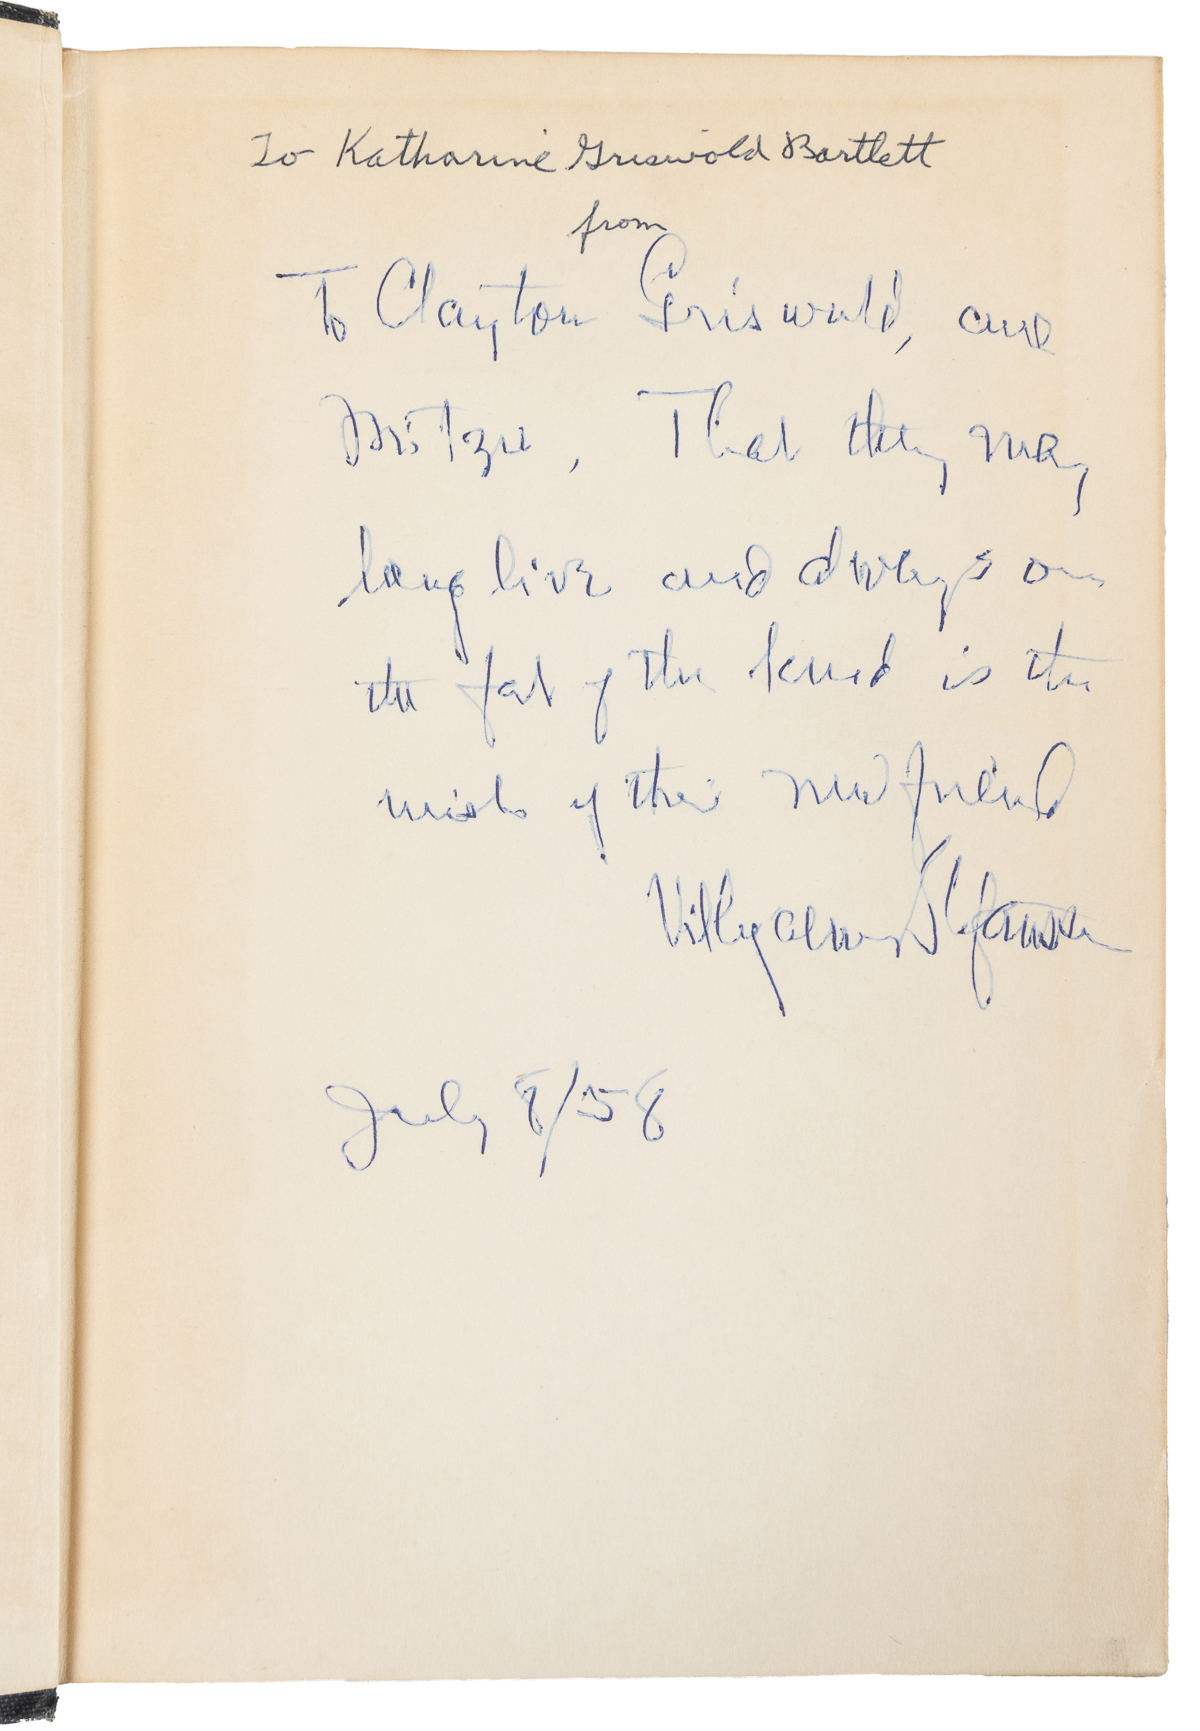 To Katharine Griswold Bartlett
from
To Clayton Griswold, and
That they may
long live and always on
the fat of the land is the
wish of their new friend
Vilhjalmur Stefansson
July 8/58